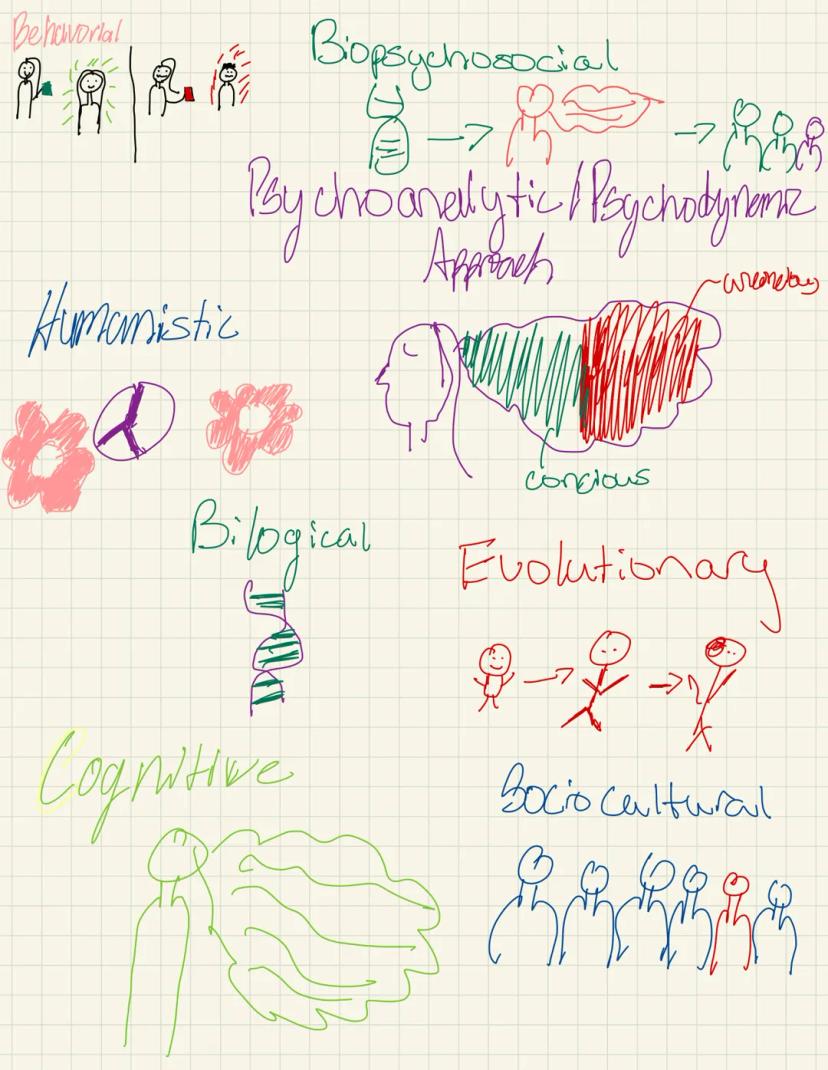 Behavorial
Biopsychosocial
Psychoanalytic/Psychodynamic
Approach
Humanistic
concious
Bilogical
Evolutionary
Cognitive
Sociocultural